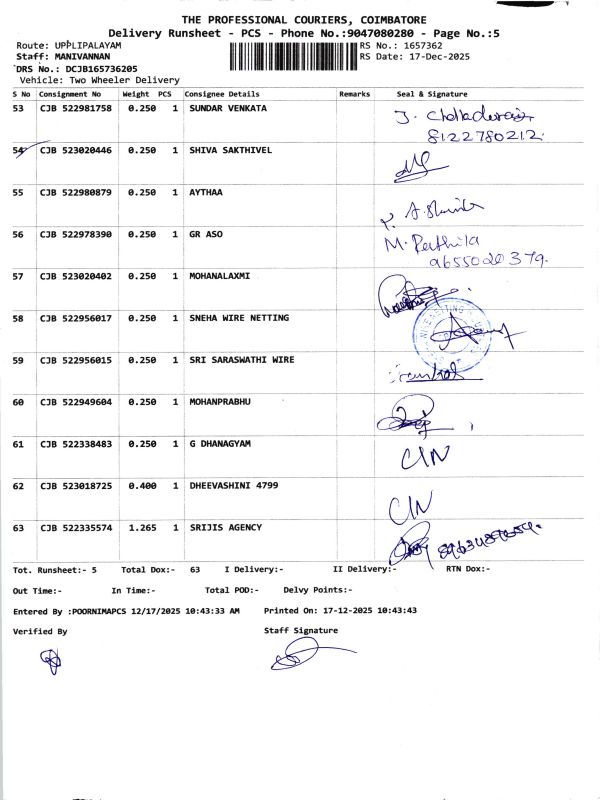 THE PROFESSIONAL COURIERS, COIMBATORE
Delivery Runsheet - PCS - Phone No.:9047080280 - Page No.:5
Route: UPPLIPALAYAM RS No.: 1657362
Staff: MANIVANNAN RS Date: 17-Dec-2025
DRS No.: DCJB165736205
Vehicle: Two Wheeler Delivery
S No Consignment No Weight PCS Consignee Details Remarks Seal & Signature
53 CJB 522981758 0.250 1 SUNDAR VENKATA
8122780212
54 CJB 523020446 0.250 1 SHIVA SAKTHIVEL
55 CJB 522980879 0.250 1 AYTHAA
56 CJB 522978390 0.250 1 GR ASO M. Pathila
9655020379.
57 CJB 523020402 0.250 1 MOHANALAXMI
58 CJB 522956017 0.250 1 SNEHA WIRE NETTING
59 CJB 522956015 0.250 1 SRI SARASWATHI WIRE
60 CJB 522949604 0.250 1 MOHANPRABHU
61 CJB 522338483 0.250 1 G DHANAGYAM CIN
62 CJB 523018725 0.400 1 DHEEVASHINI 4799 CIN
63 CJB 522335574 1.265 1 SRIJIS AGENCY
Tot. Runsheet:- 5 Total Dox:- 63 I Delivery:- II Delivery:- RTN Dox:-
Out Time:- In Time:- Total POD:- Delvy Points:-
Entered By :POORNIMAPCS 12/17/2025 10:43:33 AM Printed On: 17-12-2025 10:43:43
Verified By Staff Signature